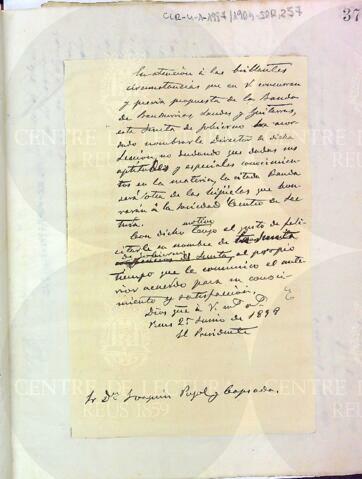 CLR-U-A-1887/1904-SDR,257
37
En atención á las brillantes
circunstancias que en V. concurren
y previa propuesta de la Banda
de Bandurrias, Laudes y Guitarras,
esta Junta de Gobierno ha acor-
dado nombrarle Director de dicha
Sección, no dudando que dadas sus
aptitudes y especiales conocimien-
tos en la materia, la citada Banda
será otra de las que hon-
rarán á la sociedad Centro de Lec-
tura.
Con dicho motivo tengo el gusto de feli-
citarle en nombre de la Junta
de gobierno al propio
tiempo que le comunico el ante-
rior acuerdo para su conoci-
miento y satisfacción.
Dios gue á V. m. a.
Reus 25 Junio de 1898
El Presidente
Sr. Dn. Joaquin Pujol y Capsada.
CENTRE DE LECTURA
REUS 1859